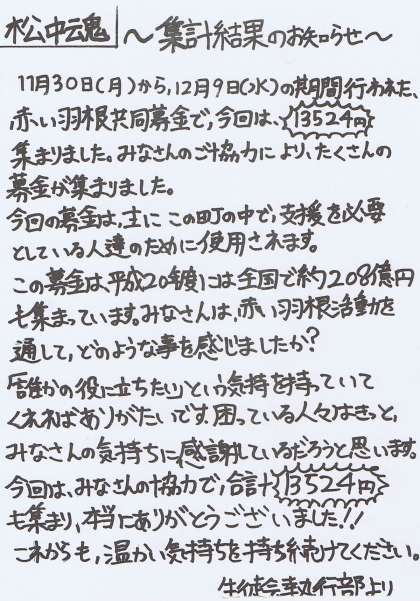 松中魂 ～集計結果のお知らせ～
11月30日(月)から、12月9日(水)の期間行われた、
赤い羽根共同募金で、今回は、13524円
集まりました。みなさんのご協力により、たくさんの
募金が集まりました。
今回の募金は、主に この町の中で、支援を必要
としている人達のために使用されます。
この募金は、平成20年度には全国で約208億円
も集まっています。みなさんは、赤い羽根活動を
通して、どのような事を感じましたか?
「誰かの役に立ちたい」という気持を持っていて
くれればありがたいです。困っている人々はきっと、
みなさんの気持ちに感謝しているだろうと思います。
今回は、みなさんの協力で、合計13524円
も集まり、本当にありがとうございました!!
これからも、温かい気持ちを持ち続けてください。
生徒会執行部より